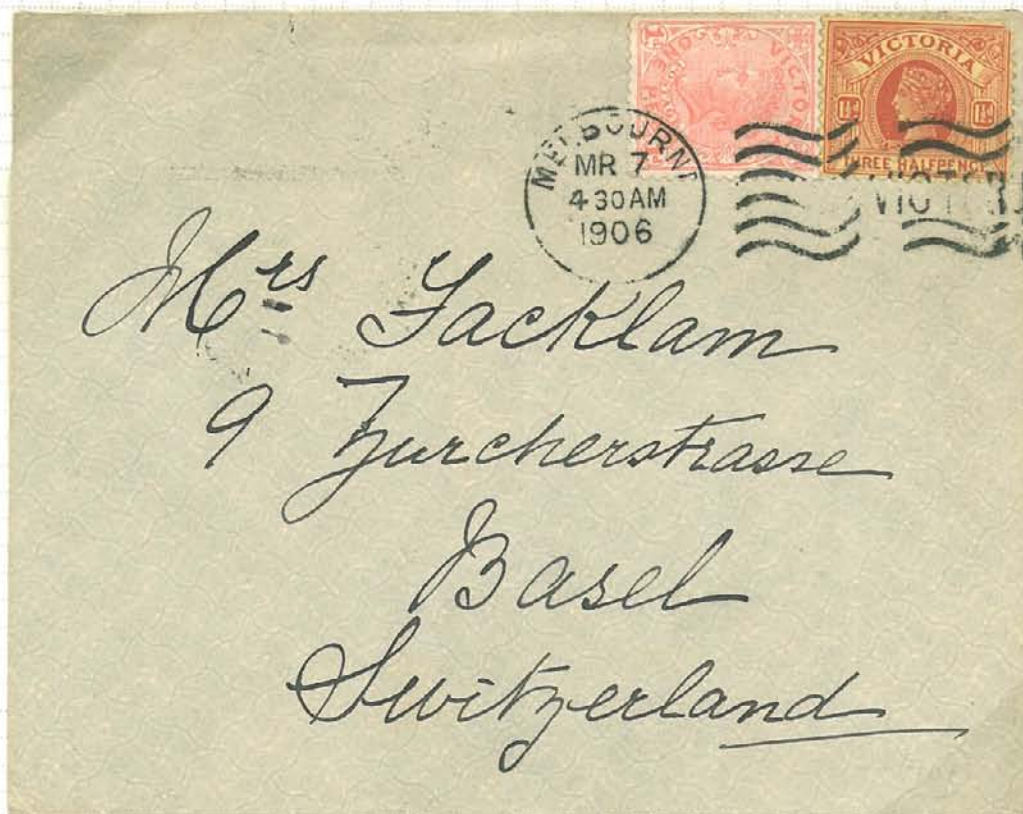 1d ONE VICTO
VICTORIA
1½d 1½d
THREE HALFPENCE
MELBOURNE
MR 7
4 30 AM
1906
VICTOR
Mrs Sacklam
9 Zurcherstrasse
Basel
Switzerland